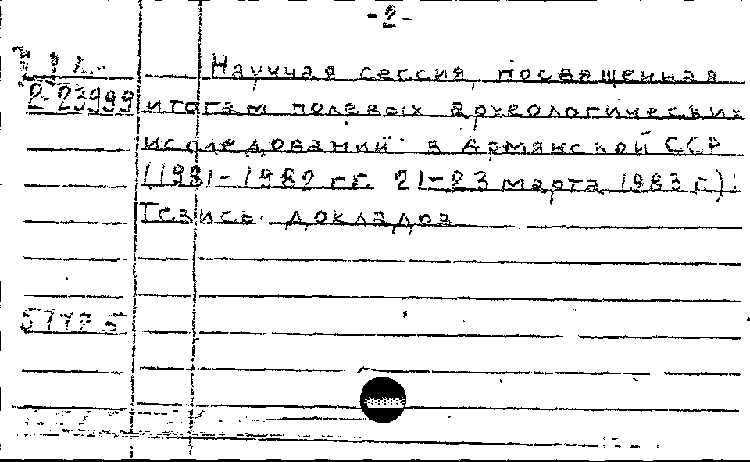 -2-
Научная сессия, посвященная
2-23999 итогам полевых археологических
исследований в Армянской ССР
(1981-1982 гг. 21-23 марта 1983 г.):
Тезисы докладов